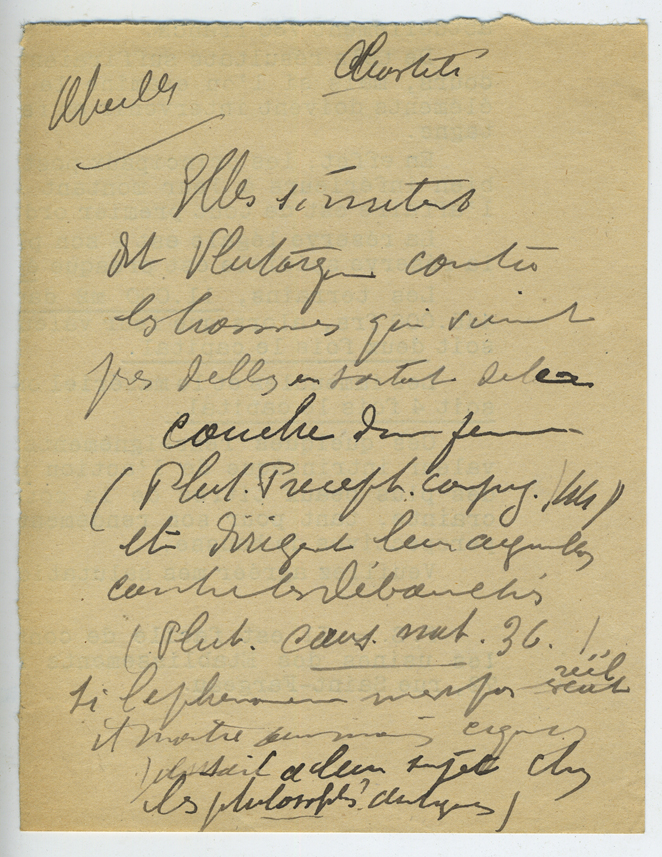 Abeilles
Chasteté
Elles s'irritent
dit Plutarque contre
les hommes qui vienent
près d'elles en sortant de la
couche d'une femme
(Plut. Precept. conjug. 44)
et dirigent leur aiguillon
contre les débauchés
(Plut. caus. nat. 36. )
si le phénomène n'est pas réel
il montre au moins
à leur sujet chez
les philosophes antiques)